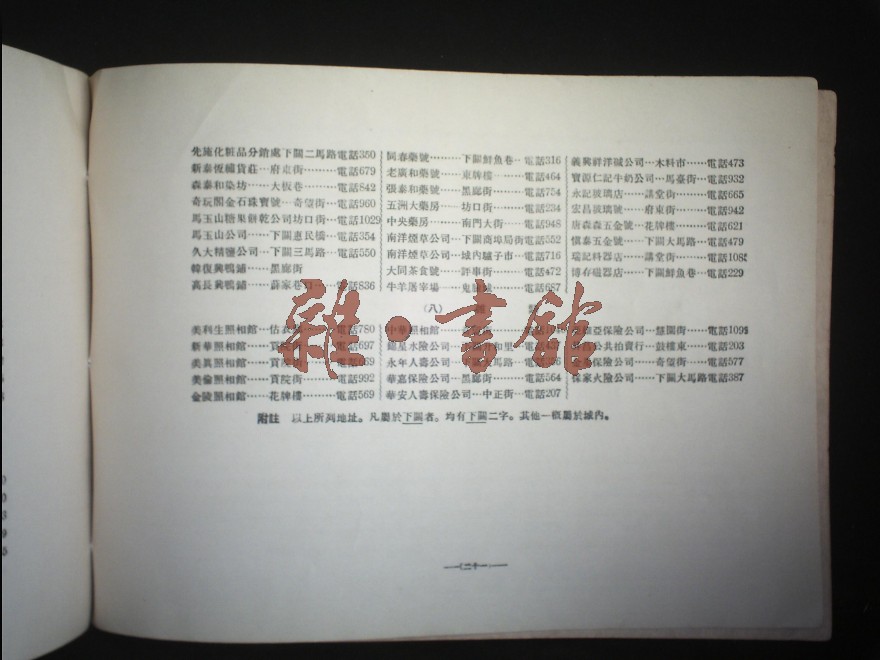 先施化粧品分銷處 下關二馬路 電話350
新泰恆禧貨莊…府東街……電話679
森泰和染坊……大板巷……電話842
奇玩閣金石珠寶號…奇望街…電話960
馬玉山糖果餅乾公司 坊口街…電話1029
馬玉山公司……下關惠民橋…電話354
久大精鹽公司…下關三馬路…電話550
韓復興鴨鋪……黑廊街
高長興鴨鋪……薛家巷口……電話836
同春藥號………下關鮮魚巷…電話316
老廣和藥號……東牌樓……電話464
張泰和藥號……黑廊街……電話754
五洲大藥房……坊口街……電話234
中央藥房………南門大街…電話948
南洋煙草公司…下關商埠局街 電話552
南洋煙草公司…城內驢子市…電話716
大同茶食號……評事街……電話472
牛羊屠宰場……電話687
義興祥洋碱公司…木料市……電話473
寶源仁記牛奶公司…馬臺街…電話932
永記玻璃店……講堂街……電話665
宏昌玻璃號……府東街……電話942
唐森森五金號…花牌樓……電話621
愼泰五金號……下關大馬路…電話479
瑞記料器店……講堂街……電話108
博存磁器店……下關鮮魚巷…電話229
(八)
美利生照相館…估衣……電話780
新華照相館……貢院……697
美眞照相館……貢院
美倫照相館……貢院街……電話992
金陵照相館……花牌樓……電話569
中華照相館
水險公司
永年人壽公司…馬路
華嘉保險公司…黑廊街……電話564
華安人壽保險公司…中正街…電話207
亞保險公司…慧園街……電話109
公共拍賣行…鼓樓東……電話203
公司…奇望街……電話577
保家火險公司…下關大馬路 電話387
附註 以上所列地址。凡屬於下關者。均有下關二字。其他一概屬於城內。
—(二十)—
雜·書館